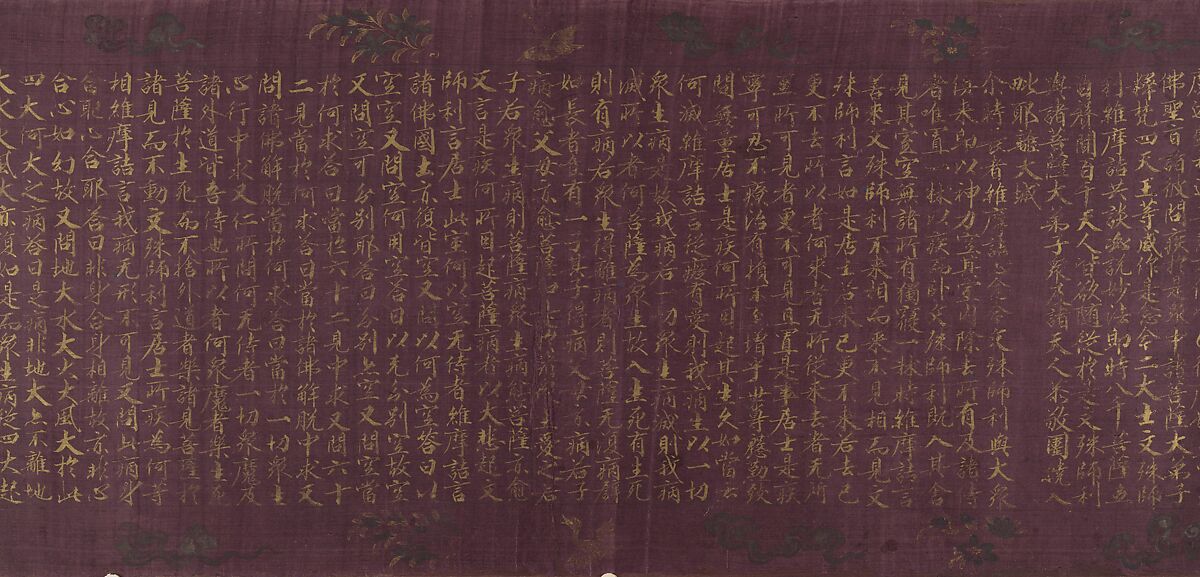 佛聖旨詣彼問疾於是眾中諸菩薩大弟子
釋梵四天王等咸作是念今二大士文殊師
利維摩詰共談必說妙法即時八千菩薩五
百聲聞百千天人皆欲隨從於是文殊師利
與諸菩薩大弟子眾及諸天人恭敬圍繞入
毗耶離大城
尒時長者維摩詰心念今文殊師利與大眾
俱來即以神力空其室內除去所有及諸侍
者唯置一牀以疾而臥文殊師利既入其舍
見其室空無諸所有獨寢一牀時維摩詰言
善來文殊師利不來相而來不見相而見文
殊師利言如是居士若來已更不來若去已
更不去所以者何來者无所從來去者无所
至所可見者更不可見且置是事居士是疾
寧可忍不療治有損不至增乎世尊慇勤致
問無量居士是疾何所因起其生久如當云
何滅維摩詰言從癡有愛則我病生以一切
眾生病是故我病若一切眾生病滅則我病
滅所以者何菩薩為眾生故入生死有生死
則有病若眾生得離病者則菩薩无復病譬
如長者唯有一子其子得病父母亦病若子
病愈父母亦愈菩薩如是於諸眾生愛之若
子眾生病則菩薩病眾生病愈菩薩亦愈
又言是疾何所因起菩薩病者以大悲起文殊
師利言居士此室何以空无侍者維摩詰言
諸佛國土亦復皆空又問以何為空答曰以
空空又問空何用空答曰以无分別空故空
又問空可分別耶答曰分別亦空又問空當
於何求答曰當於六十二見中求又問六十
二見當於何求答曰當於諸佛解脫中求又
問諸佛解脫當於何求答曰當於一切眾生
心行中求又仁所問何无侍者一切眾魔及
諸外道皆吾侍也所以者何眾魔者樂生死
菩薩於生死而不捨外道者樂諸見菩薩於
諸見而不動文殊師利言居士所疾為何等
相維摩詰言我病无形不可見又問此病身
合耶心合耶答曰非身合身相離故亦非心
合心如幻故又問地大水大火大風大於此
四大何大之病答曰是病非地大亦不離地
大水火風大亦復如是而眾生病從四大起